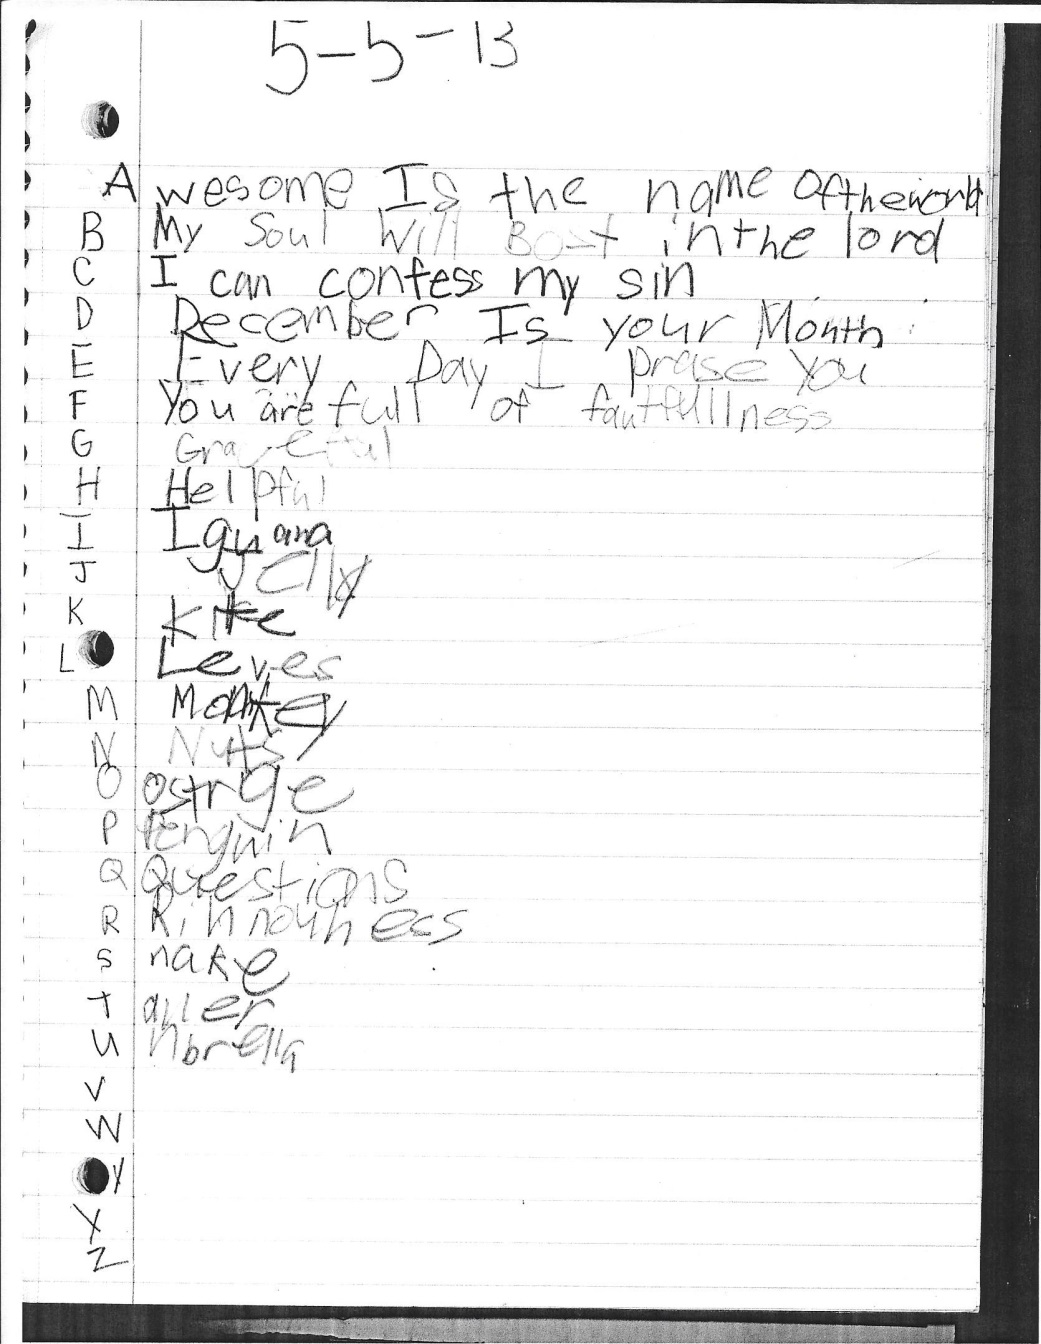 5-5-13
A wesome Is the name of the world
B My Soul Will Bost in the lord
C I can confess my sin
D December Is your Month
E Every Day I prase You
F You are full of fautfullness
G Graceful
H Helpful
I Iguana
J Jelly
K Kite
L Leves
M Monkey
N Nuts
O ostrge
P Penguin
Q Questions
R Rihnouhess
S nake
T aller
U mbrella
V
W
Y
X
Z